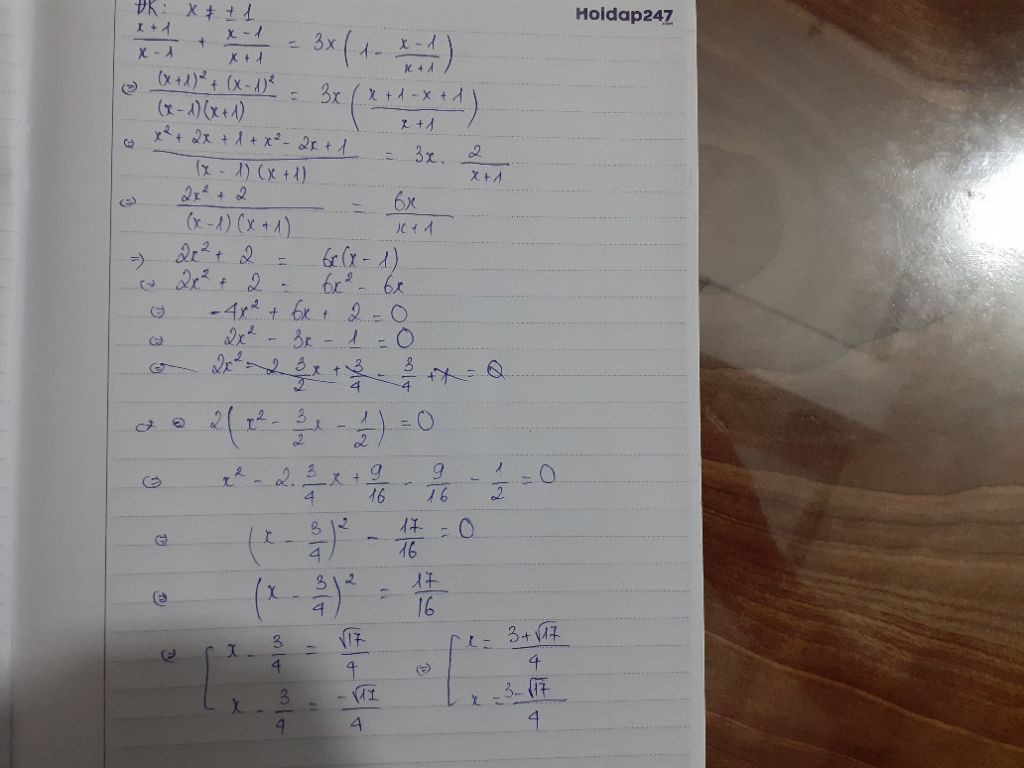 Hoidap247
.com
ĐK: x ≠ ±1
(x+1)/(x-1) + (x-1)/(x+1) = 3x(1 - (x-1)/(x+1))
⇔ ((x+1)² + (x-1)²)/((x-1)(x+1)) = 3x((x+1-x+1)/(x+1))
⇔ (x² + 2x + 1 + x² - 2x + 1)/((x-1)(x+1)) = 3x. 2/(x+1)
⇔ (2x² + 2)/((x-1)(x+1)) = 6x/(x+1)
⇒ 2x² + 2 = 6x(x-1)
⇔ 2x² + 2 = 6x² - 6x
⇔ -4x² + 6x + 2 = 0
⇔ 2x² - 3x - 1 = 0
⇔ 2(x² - 3/2 x - 1/2) = 0
⇔ x² - 2. 3/4 x + 9/16 - 9/16 - 1/2 = 0
⇔ (x - 3/4)² - 17/16 = 0
⇔ (x - 3/4)² = 17/16
⇔ [ x - 3/4 = √17/4 ⇔ [ x = (3+√17)/4
x - 3/4 = -√17/4 x = (3-√17)/4